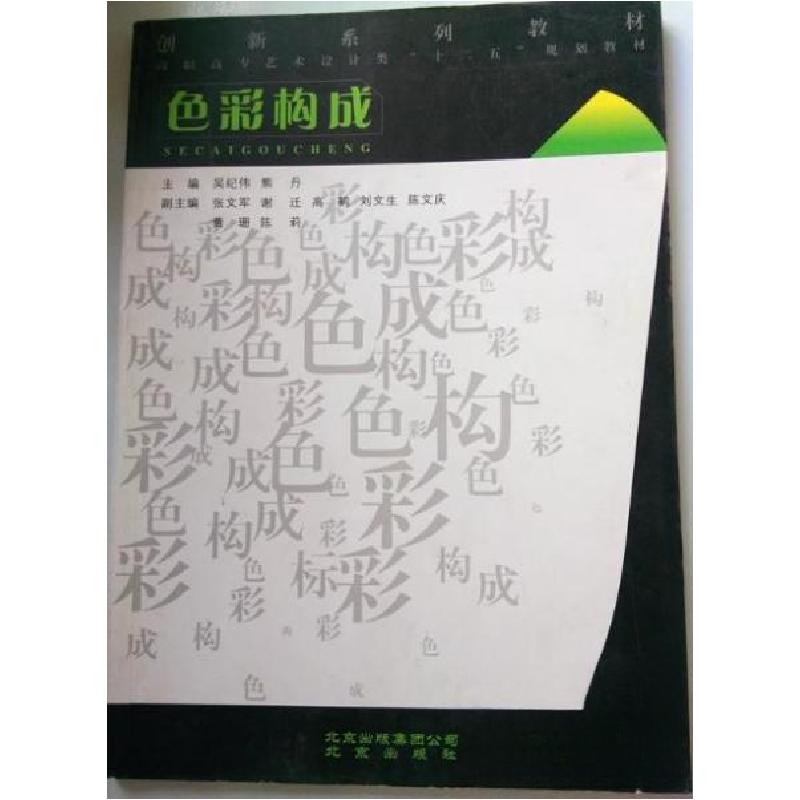 创新系列教材
高职高专艺术设计类“十一五”规划教材
色彩构成
SECAIGOUCHENG
主编 吴纪伟 熊 丹
副主编 张文军 谢 迁 高 鹤 刘文生 陈文庆
曹 珊 陈 莉
色 构 色 成 构 色 彩 构 成
成 构 彩 构 色 成 色 彩 构
成 成 色 构 色 彩
色 构 彩 色 彩 构 色 彩
彩 成 成 色 色
色 构 成 彩 彩 色
彩 色 彩 标 彩 构 成
成 构 彩 色
色 成
北京出版集团公司
北京出版社